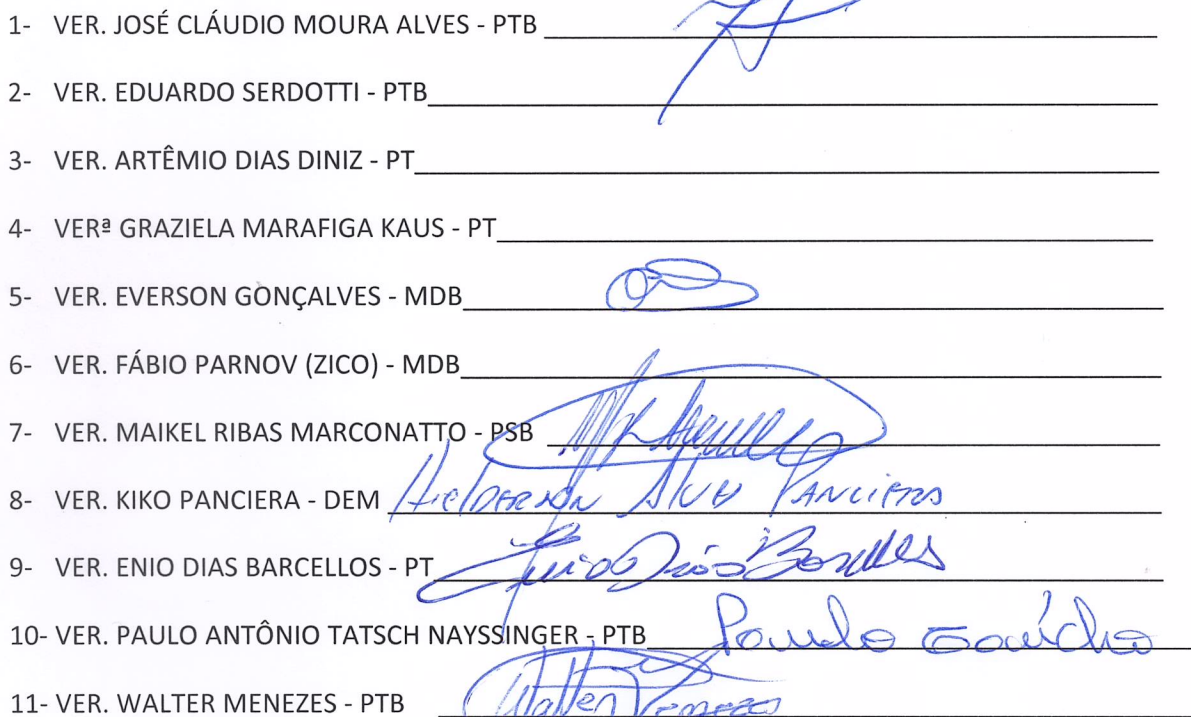 1- VER. JOSÉ CLÁUDIO MOURA ALVES - PTB
2- VER. EDUARDO SERDOTTI - PTB
3- VER. ARTÊMIO DIAS DINIZ - PT
4- VERª GRAZIELA MARAFIGA KAUS - PT
5- VER. EVERSON GONÇALVES - MDB
6- VER. FÁBIO PARNOV (ZICO) - MDB
7- VER. MAIKEL RIBAS MARCONATTO - PSB
8- VER. KIKO PANCIERA - DEM
9- VER. ENIO DIAS BARCELLOS - PT Enio Dias Barcellos
10- VER. PAULO ANTÔNIO TATSCH NAYSSINGER - PTB Paulo Gaúcho
11- VER. WALTER MENEZES - PTB Walter Menezes